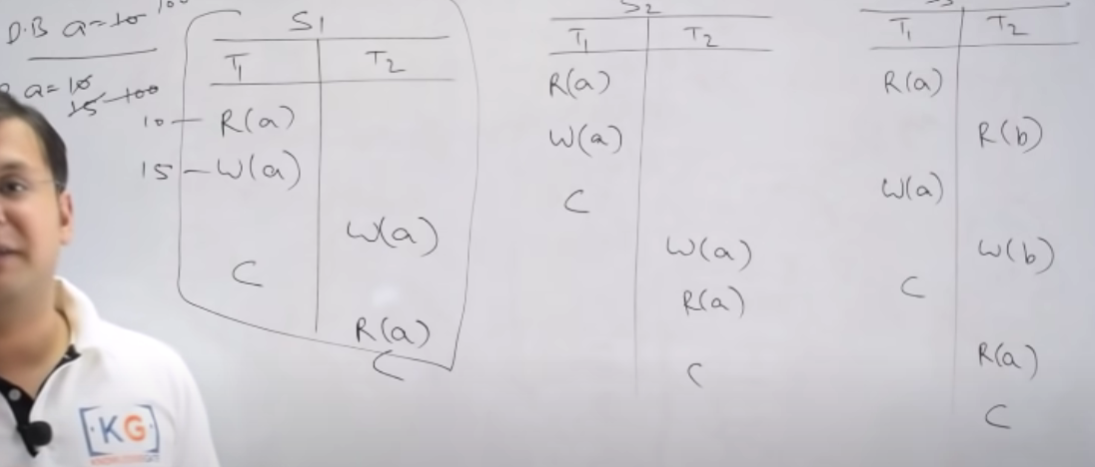 D.B a=10 100
a=10
15 100
S1
T1 T2
10 — R(a)
15 — W(a)
W(a)
C
R(a)
C
S2
T1 T2
R(a)
W(a)
C
W(a)
R(a)
C
T1 T2
R(a)
R(b)
W(a)
W(b)
C
R(a)
C
[KG]